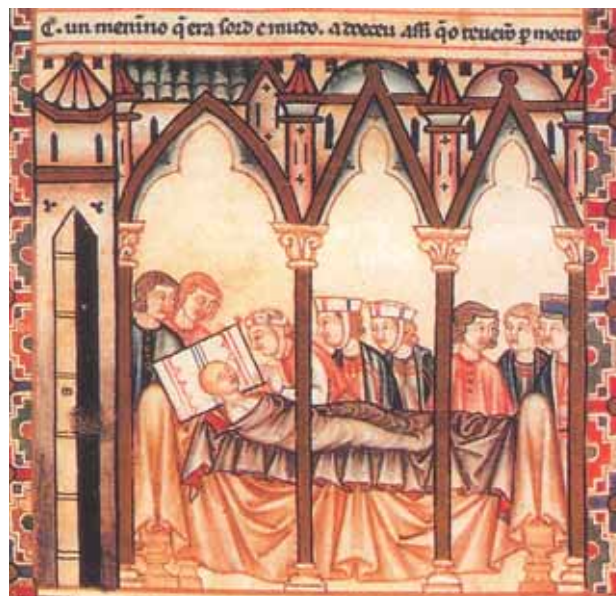 C. un menino q̃ era sord e mudo. adoeceu assi q̃o teueiõ p morto